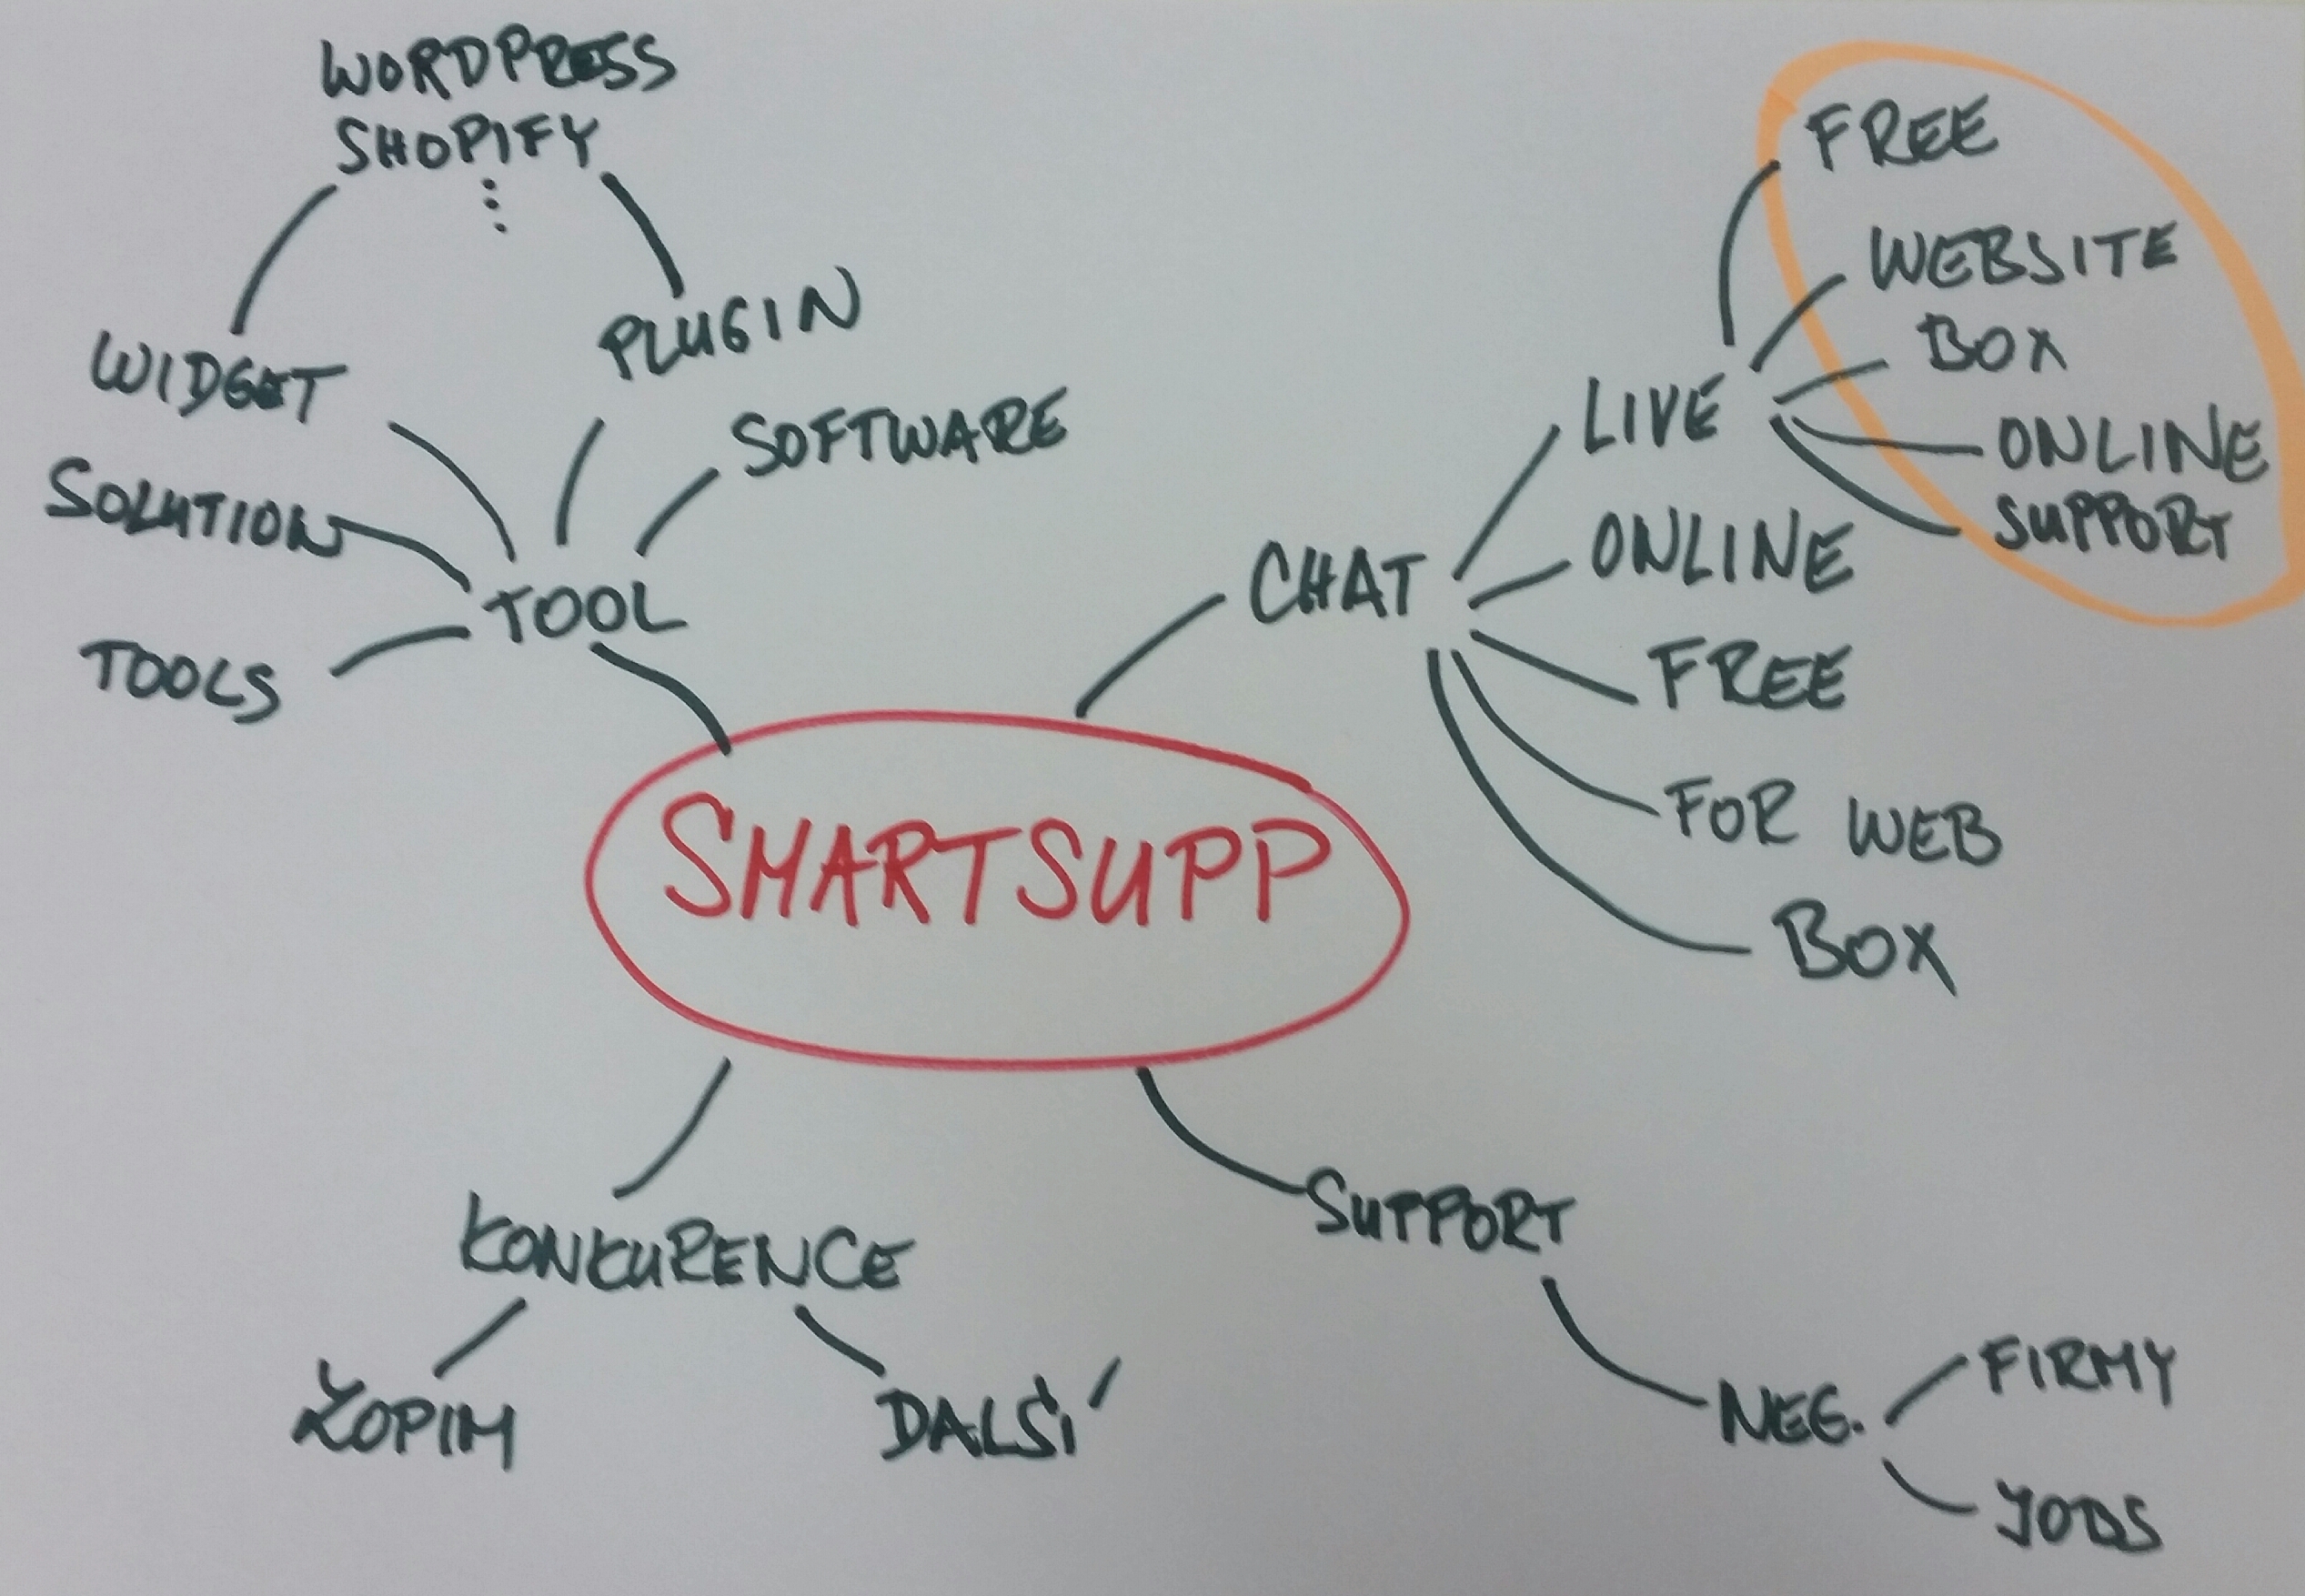 WORDPRESS
SHOPIFY
WIDGET
PLUGIN
SOLUTION
SOFTWARE
TOOLS
TOOL
CHAT
LIVE
FREE
WEBSITE
BOX
ONLINE
SUPPORT
ONLINE
FREE
FOR WEB
BOX
SMARTSUPP
KONKURENCE
ZOPIM
DALŠÍ
SUPPORT
NEG.
FIRMY
JOBS